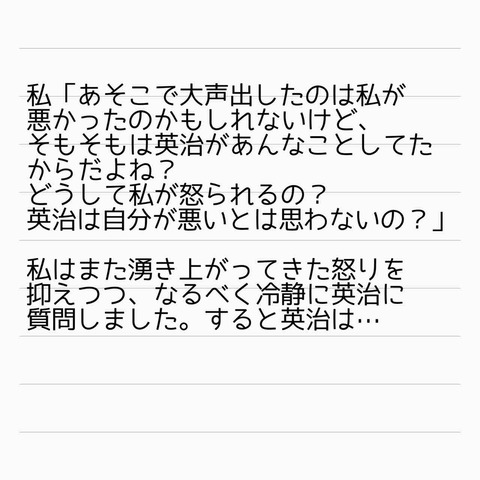 私「あそこで大声出したのは私が
悪かったのかもしれないけど、
そもそもは英治があんなことしてた
からだよね？
どうして私が怒られるの？
英治は自分が悪いとは思わないの？」
私はまた湧き上がってきた怒りを
抑えつつ、なるべく冷静に英治に
質問しました。すると英治は…